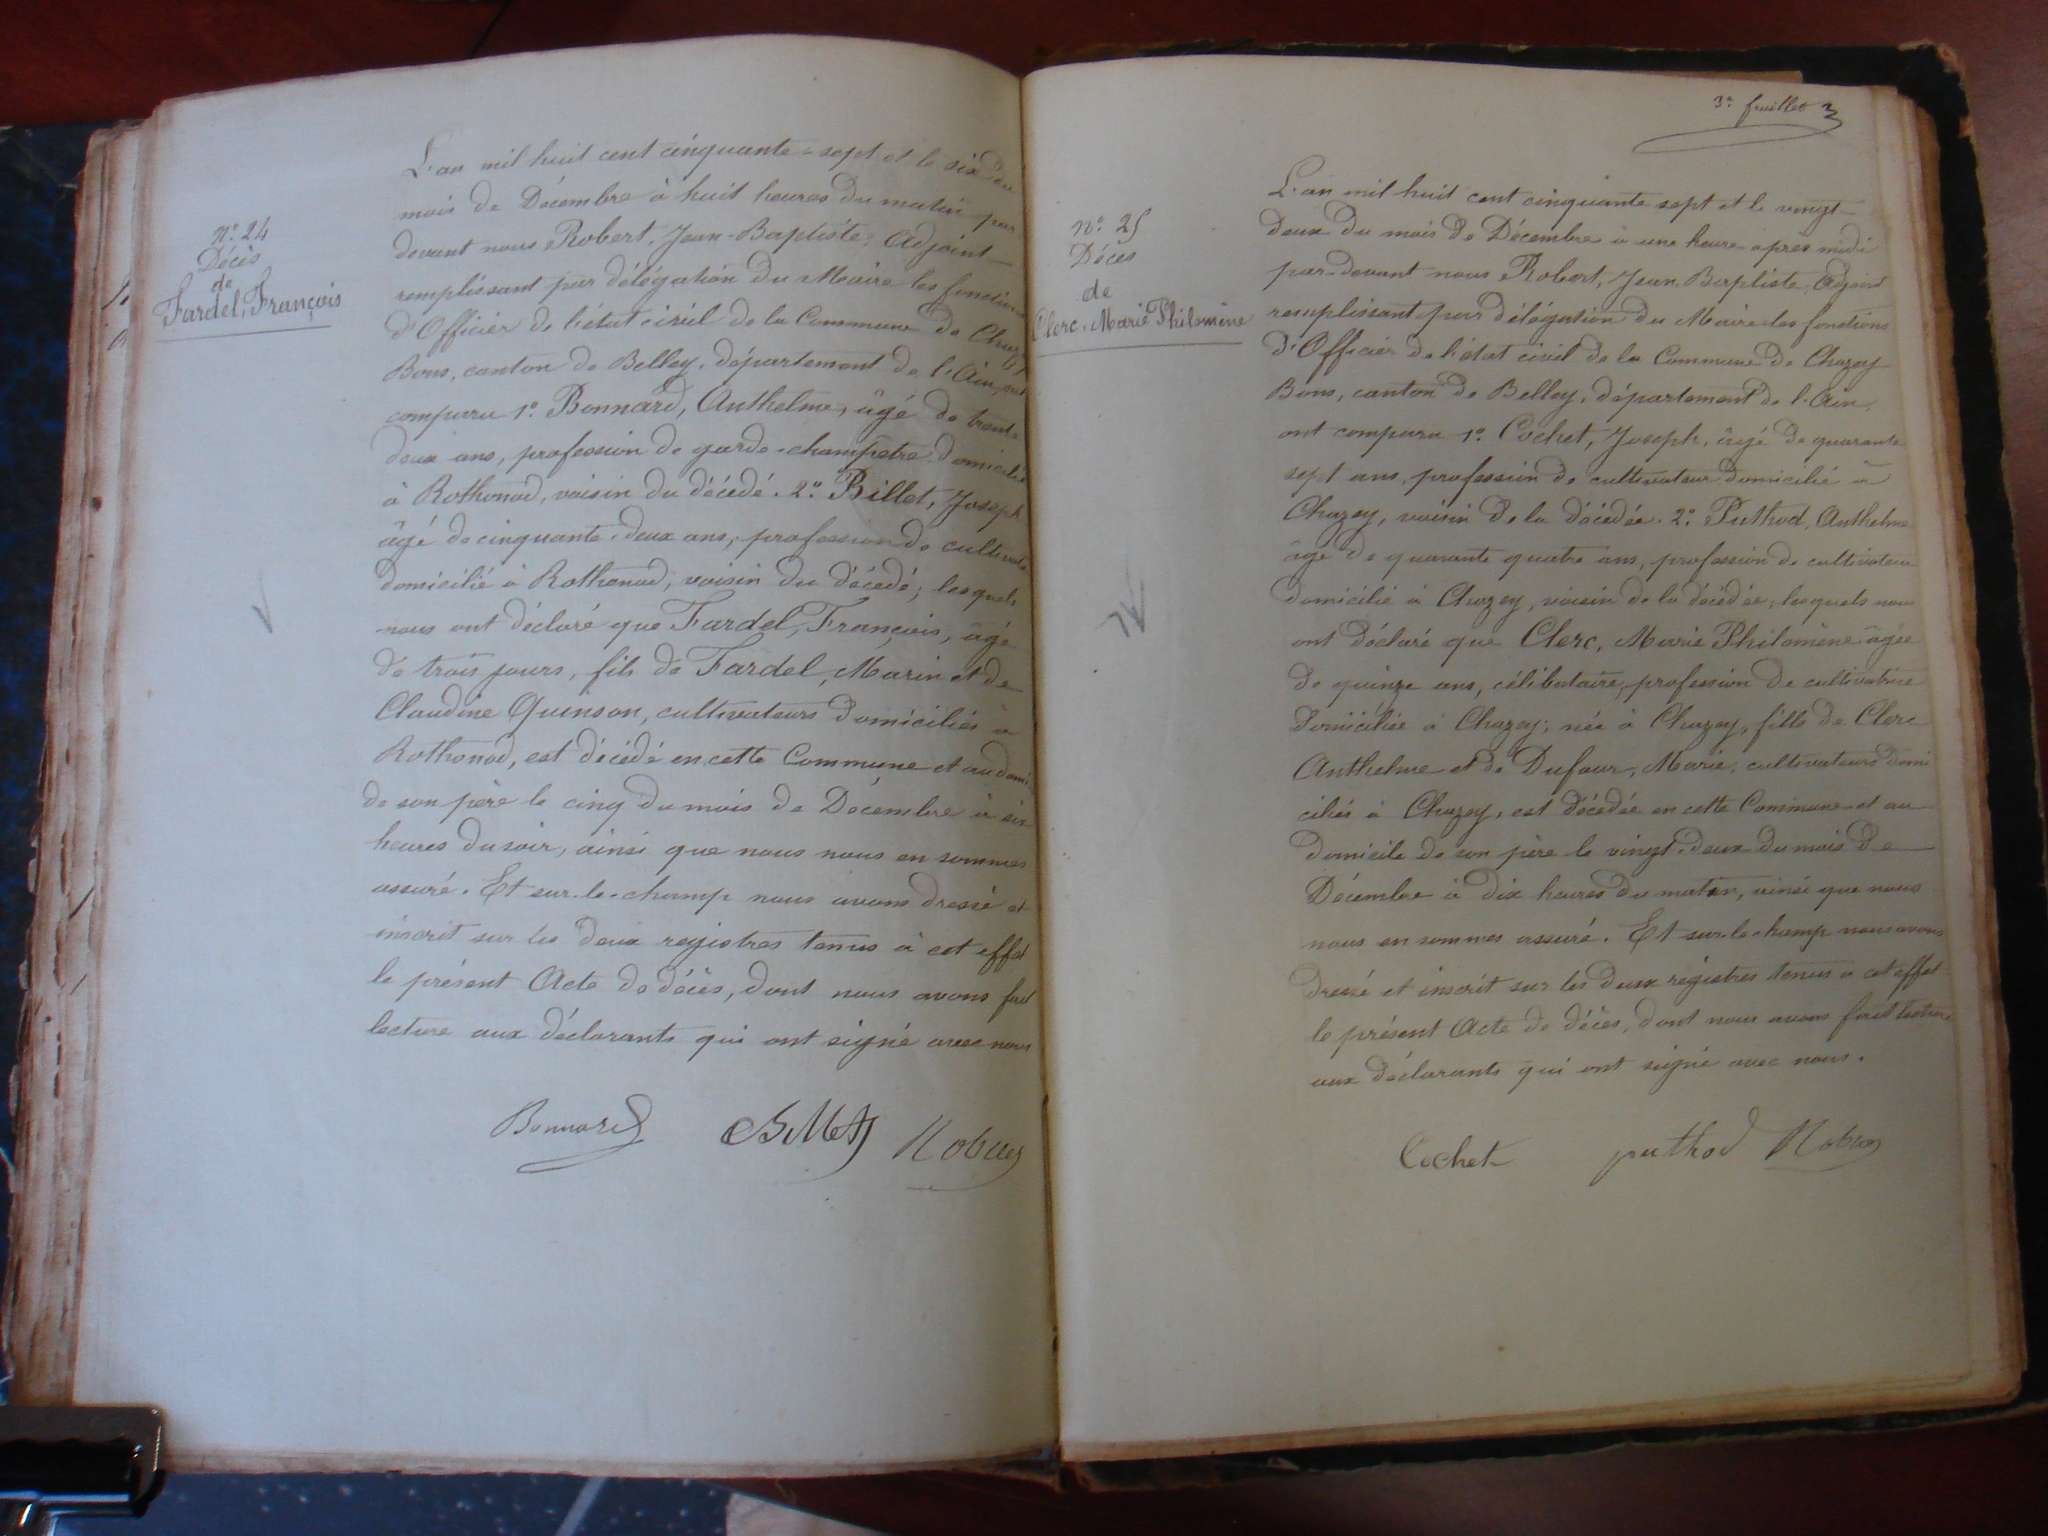 N° 24
Décès
de
Fardel, François
L'an mil huit cent cinquante-sept et le six du
mois de Décembre à huit heures du matin par
devant nous Robert, Jean-Baptiste, Adjoint
remplissant par délégation du Maire les fonctions
d'Officier de l'état civil de la Commune de Chazey
Bons, canton de Belley, département de l'Ain, ont
comparu 1° Bonnard, Anthelme, âgé de trente
deux ans, profession de garde-champêtre domicilié
à Rothonod, voisin du décédé. 2° Billet, Joseph
âgé de cinquante-deux ans, profession de cultivateur
domicilié à Rothonod, voisin du décédé; lesquels
nous ont déclaré que Fardel, François, âgé
de trois jours, fils de Fardel, Marin et de
Claudine Quinson, cultivateurs domiciliés à
Rothonod, est décédé en cette Commune et au domi
de son père le cinq du mois de Décembre à six
heures du soir, ainsi que nous nous en sommes
assuré. Et sur-le-champ nous avons dressé et
inscrit sur les deux registres tenus à cet effet
le présent Acte de décès, dont nous avons fait
lecture aux déclarants qui ont signé avec nous
Bonnard Billet Robert
3e feuillet
N° 25
Décès
de
Clerc, Marie Philomène
L'an mil huit cent cinquante sept et le vingt
deux du mois de Décembre à une heure après midi
par-devant nous Robert, Jean Baptiste, Adjoint
remplissant par délégation du Maire les fonctions
d'Officier de l'état civil de la Commune de Chazey
Bons, canton de Belley, département de l'Ain,
ont comparu 1° Cochet, Joseph, âgé de quarante
sept ans, profession de cultivateur domicilié à
Chazey, voisin de la décédée. 2° Puthod, Anthelme
âgé de quarante quatre ans, profession de cultivateur
domicilié à Chazey, voisin de la décédée; lesquels nous
ont déclaré que Clerc, Marie Philomène âgée
de quinze ans, célibataire, profession de cultivatrice
domiciliée à Chazey; née à Chazey, fille de Clerc
Anthelme et de Dufour, Marie, cultivateurs domi
ciliés à Chazey, est décédée en cette Commune et au
domicile de son père le vingt-deux du mois de
Décembre à dix heures du matin, ainsi que nous
nous en sommes assuré. Et sur-le-champ nous avons
dressé et inscrit sur les deux registres tenus à cet effet
le présent Acte de décès, dont nous avons fait lecture
aux déclarants qui ont signé avec nous.
Cochet puthod Robert